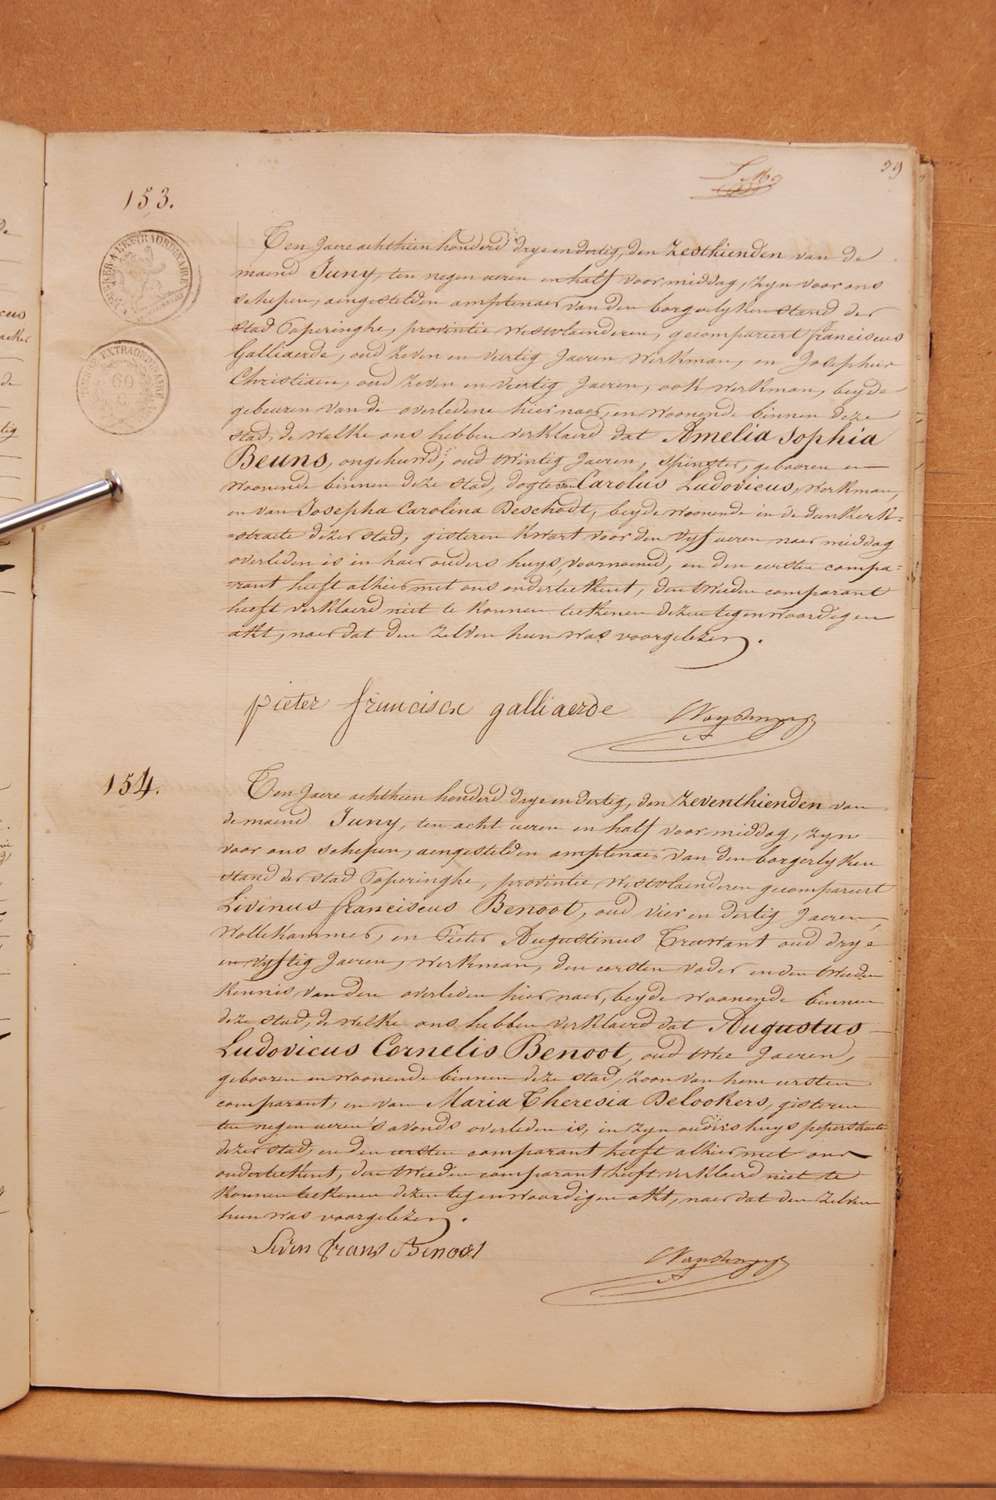 39
153.
Ten Jaere achthien honderd drye en dertig, den Zesthienden van de
maend Juny, ten negenueren en half voor middag, zyn voor ons
schepen, aengestelden amptenaer van den borgerlyken stand der
stad Poperinghe, provintie Westvlaenderen, gecompareert franciscus
Galliaerde, oud zeven en veertig Jaeren Werkman, en Josephus
Christiaen, oud zeven en viertig Jaeren, ook werkman, beyde
gebeuren van de overledene hier naer, en woonende binnen deze
stad, de welke ons hebben verklaerd dat Amelia Sophia
Beuns, ongehuwd, oud twintig Jaeren, Spinster, gebooren en
woonende binnen deze stad, dogter van Carolus Ludovicus, werkman,
en van Josepha Carolina Beschodt, beyde woonende in de dunkerk=
=straete dezer stad, gisteren kwart voor den vyf ueren naer middag
overleden is in haer ouders huys, voornoemd, en den eersten compa=
=rant heeft alhier met ons onderteekent, den tweeden comparant
heeft verklaerd niet te konnen teekenen dezen tegenwoordigen
akt, naer dat den zelven hun was voorgelezen.
pieter franciscu galliaerde
154.
Ten Jaere achthien honderd drye en dertig, den Zeventhienden van
de maend Juny, ten acht ueren en half voor middag, zyn
voor ons schepen, aengestelden amptenaer van den borgerlyken
stand der stad Poperinghe, provintie Westvlaenderen gecompareert
Livinus franciscus Benoot, oud vier en dertig Jaeren,
Wollekammer, en Pieter Augustinus Truwant oud drye
en vyftig Jaeren, werkman, den eersten vader en den tweeden
kennis, van den overleden hier naer, beyde woonende binnen
deze stad, de welke ons hebben verklaerd dat Augustus
Ludovicus Cornelis Benoot, oud twee Jaeren,
gebooren en woonende binnen deze stad, zoon van hem eersten
comparant, en van Maria Theresia Delookers, gisteren
ten negen ueren s'avonds overleden is, in zyn ouders huys peperstraete
dezer stad, en den eersten comparant heeft alhier met ons
onderteekent, den tweeden comparant heeft verklaerd niet te
konnen teekenen dezen tegenwoordigen akt, naer dat den zelven
hun was voorgelezen.
Liven frans Benoot